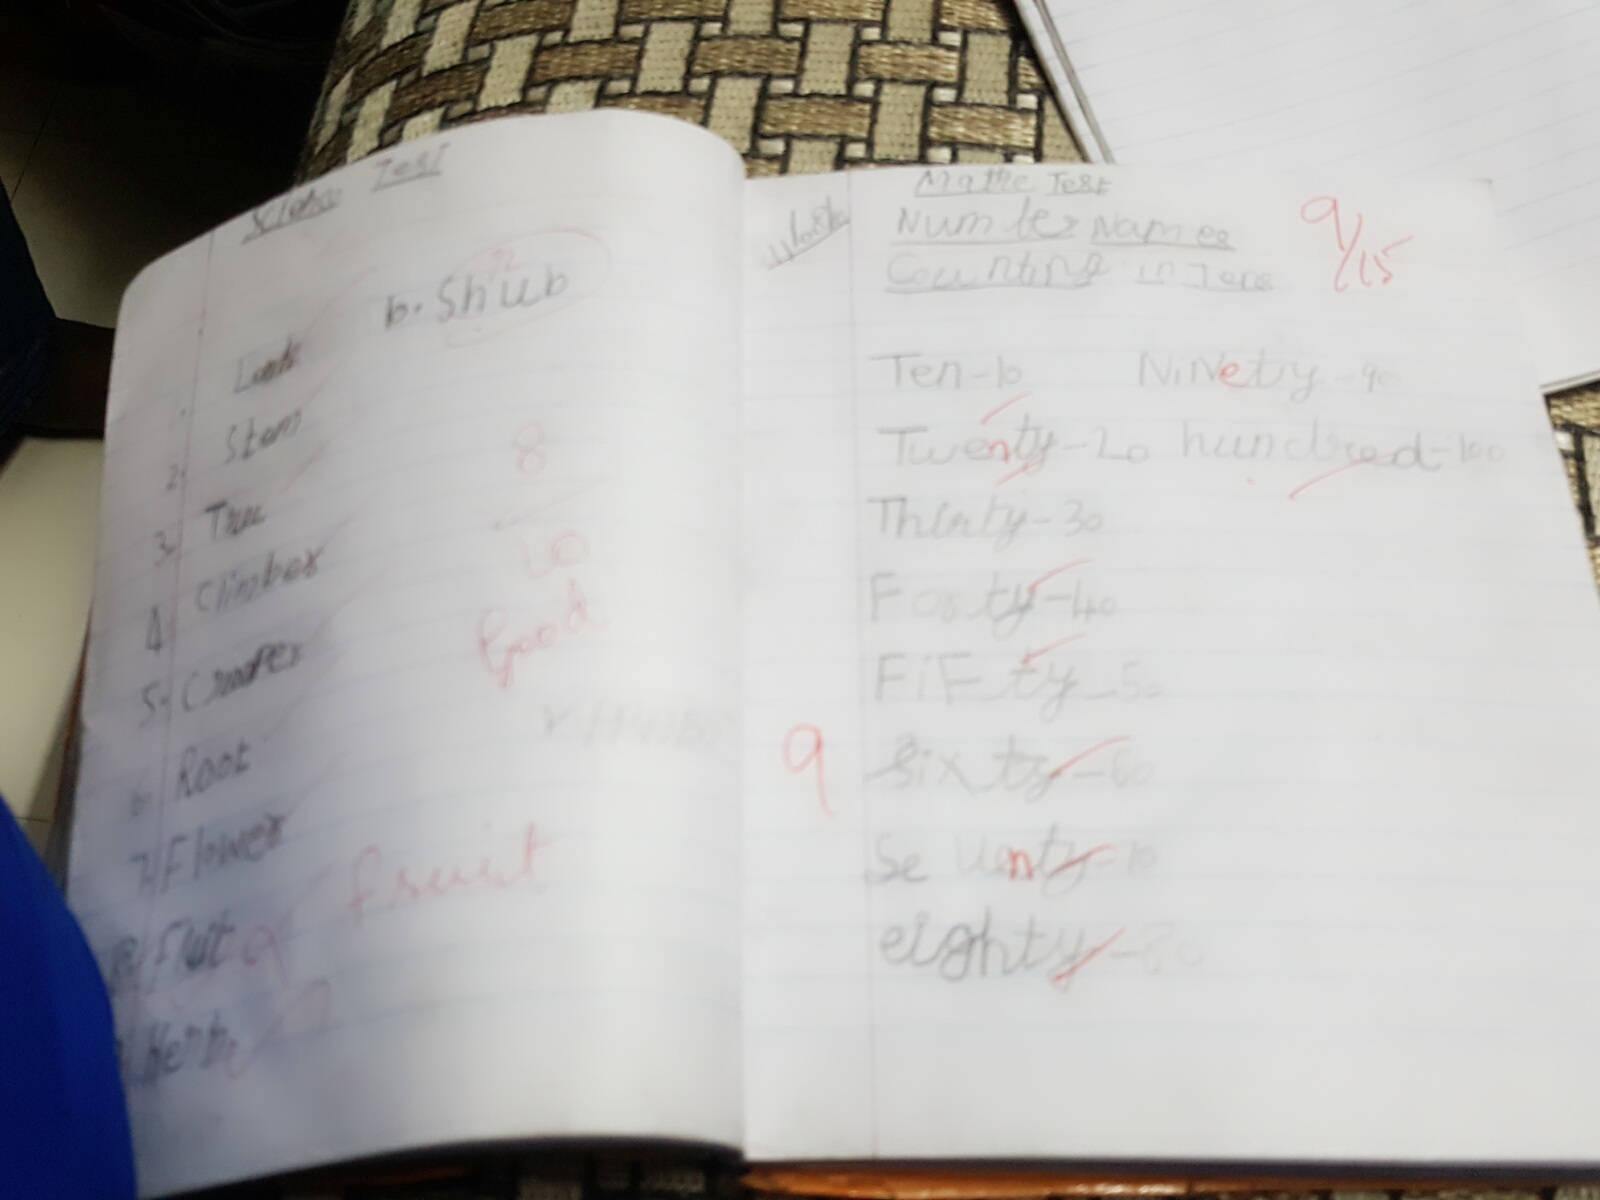 Science Test
b. Shub
Stem
2.
3. Tree
4. Climber
5. Creeper
6. Root
7. Flower
8. Flut fruit
Herb
8
10
Good
Maths Test
Number Names
Counting in Tens
9/15
Ten-10 Ninety-90
Twenty-20 hundred-100
Thirty-30
Forty-40
FiFty-50
9 Sixty-60
Seventy-10
eighty-80